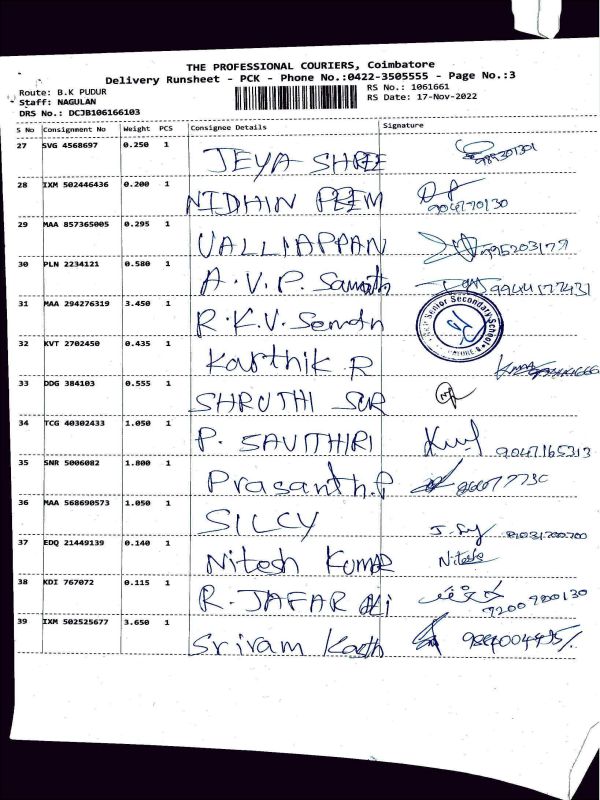 THE PROFESSIONAL COURIERS, Coimbatore
Delivery Runsheet - PCK - Phone No.:0422-3505555 - Page No.:3
Route: B.K PUDUR RS No.: 1061661
Staff: NAGULAN RS Date: 17-Nov-2022
DRS No.: DCJB106166103
S No Consignment No Weight PCS Consignee Details Signature
27 SVG 4568697 0.250 1 JEYA SHREE
28 IXM 502446436 0.200 1 NIDHIN PREM
29 MAA 857365005 0.295 1 VALLIAPPAN
30 PLN 2234121 0.580 1 A.V.P. 9944577431
31 MAA 294276319 3.450 1 R.K.V. Senior Secondary School
32 KVT 2702450 0.435 1 Karthik R
33 DDG 384103 0.555 1 SHRUTHI SUR
34 TCG 40302433 1.050 1 P. SAVITHIRI 9047165313
35 SNR 5006082 1.800 1 Prasanth.P
36 MAA 568690573 1.050 1 SILCY
37 EDQ 21449139 0.140 1 Nitesh Kumar
38 KDI 767072 0.115 1 R. JAFAR Ali 9200900130
39 IXM 502525677 3.650 1 Sriram